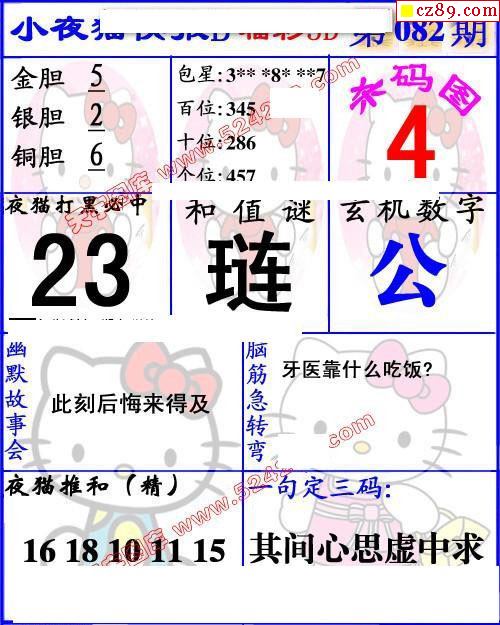 cz89.com
小夜猫快报D 福彩3D 第082期
金胆 5
银胆 2
铜胆 6
包星: 3** *8* **7
百位: 345
十位: 286
个位: 457
来码图
4
夜猫打黑必中
23
和值谜
琏
玄机数字
公
幽默故事会
此刻后悔来得及
脑筋急转弯
牙医靠什么吃饭?
夜猫推和(精)
16 18 10 11 15
一句定三码:
其间心思虚中求